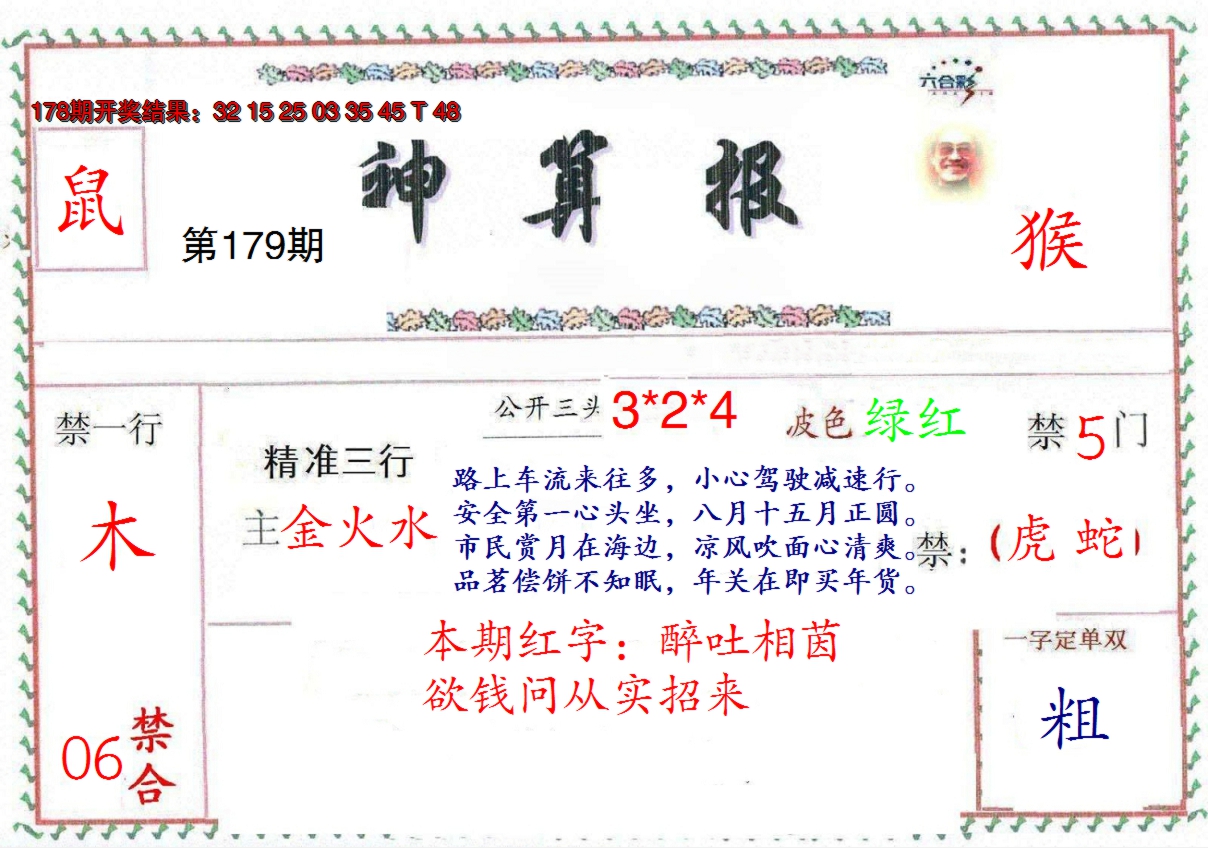 六合彩
178期开奖结果：32 15 25 03 35 45 T 48
神算报
鼠
第179期
猴
禁一行
木
06
禁合
公开三头
3*2*4
波色
绿红
禁5门
精准三行
主金火水
路上车流来往多，小心驾驶减速行。
安全第一心头坐，八月十五月正圆。
市民赏月在海边，凉风吹面心清爽。
品茗偿饼不知眠，年关在即买年货。
禁：（虎 蛇）
本期红字：醉吐相茵
欲钱问从实招来
一字定单双
粗